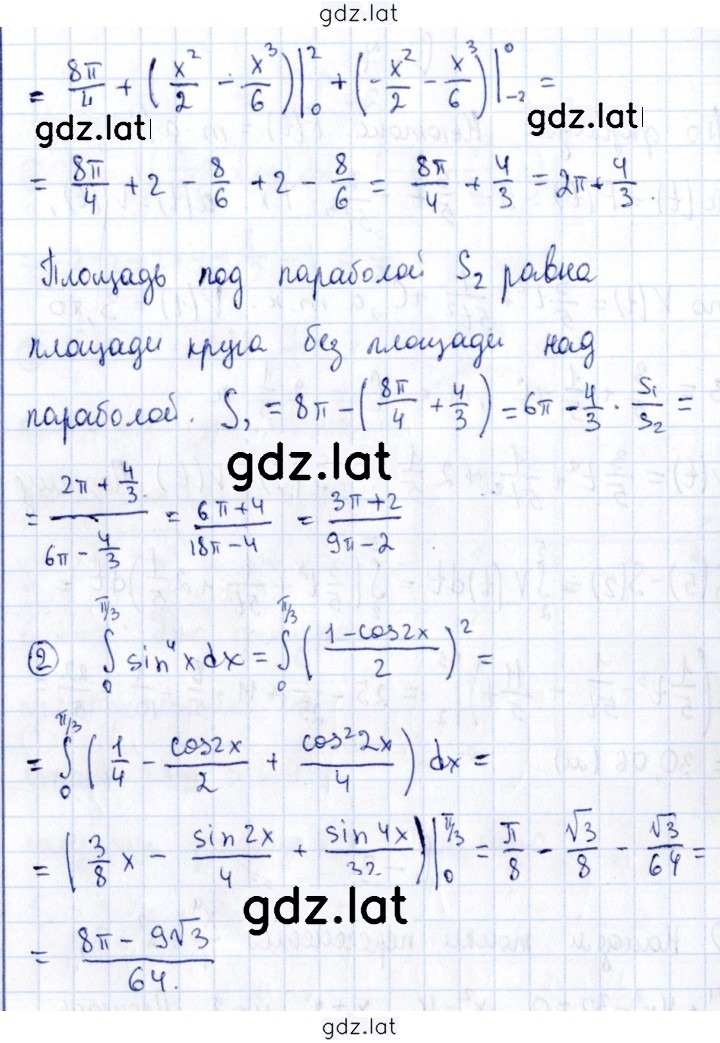 gdz.lat
= 8π/4 + (x²/2 − x³/6)|₀² + (−x²/2 − x³/6)|₋₂⁰ =
gdz.lat gdz.lat
= 8π/4 + 2 − 8/6 + 2 − 8/6 = 8π/4 + 4/3 = 2π + 4/3.
Площадь под параболой S₂ равна
площади круга без площади над
параболой. S₁ = 8π − (8π/4 + 4/3) = 6π − 4/3 · S₁/S₂ =
gdz.lat
= (2π + 4/3)/(6π − 4/3) = (6π+4)/(18π−4) = (3π+2)/(9π−2)
② ∫₀^(π/3) sin⁴x dx = ∫₀^(π/3) ((1−cos2x)/2)² =
= ∫₀^(π/3) (1/4 − cos2x/2 + cos²2x/4) dx =
= (3/8 x − sin2x/4 + sin4x/32)|₀^(π/3) = π/8 − √3/8 − √3/64 =
gdz.lat
= (8π − 9√3)/64.
gdz.lat